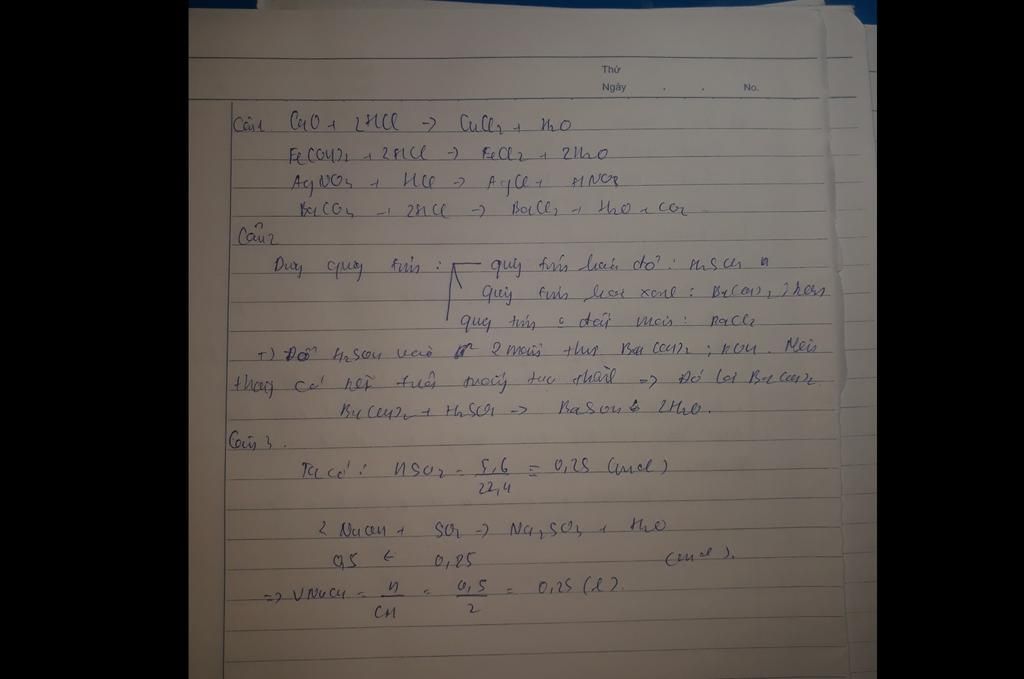 Thứ
Ngày . . No.
Câu1 CuO + 2HCl -> CuCl2 + H2O
Fe(OH)2 + 2HCl -> FeCl2 + 2H2O
AgNO3 + HCl -> AgCl + HNO3
BaCO3 + 2HCl -> BaCl2 + H2O + CO2
Câu2
Dùng quỳ tím : quỳ tím hoá đỏ : H2SO4
quỳ tím hoá xanh : Ba(OH)2, KOH
quỳ tím đổi màu : BaCl2
+) Đổ H2SO4 vào 2 mẫu thử Ba(OH)2 ; KOH . Nếu
thấy có kết tủa trắng => Đó là Ba(OH)2
Ba(OH)2 + H2SO4 -> BaSO4 2H2O.
Câu 3.
Ta có : nSO2 = 5,6/22,4 = 0,25 (mol)
2 NaOH + SO2 -> Na2SO3 + H2O
0,5 ← 0,25 (mol).
=> VNaOH = n/CM = 0,5/2 = 0,25 (l).